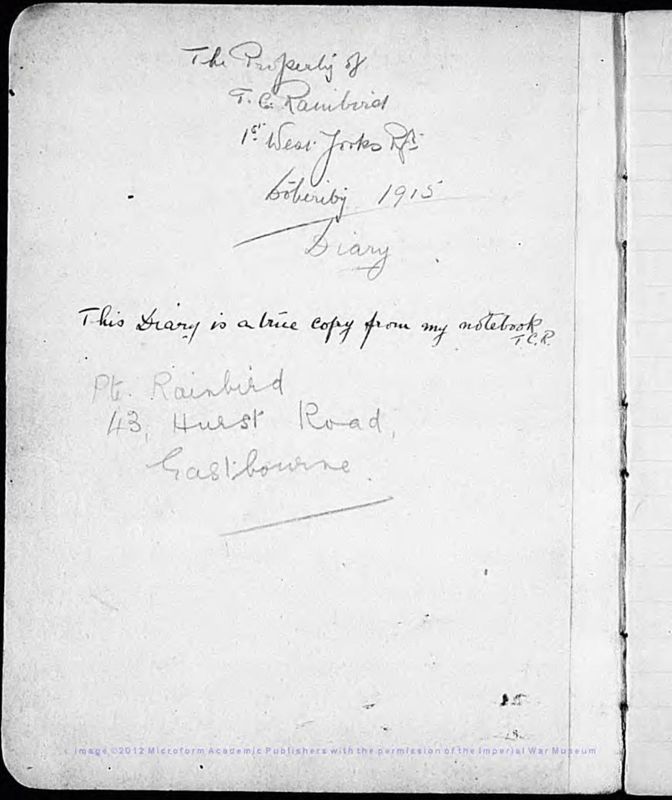 The Property of
T. C. Rainbird
1st West Yorks Rgt
Döberitz 1915
Diary
This Diary is a true copy from my notebook
T.C.R.
Pte. Rainbird
43, Hurst Road,
Eastbourne.
Image ©2012 Microform Academic Publishers with the permission of the Imperial War Museum